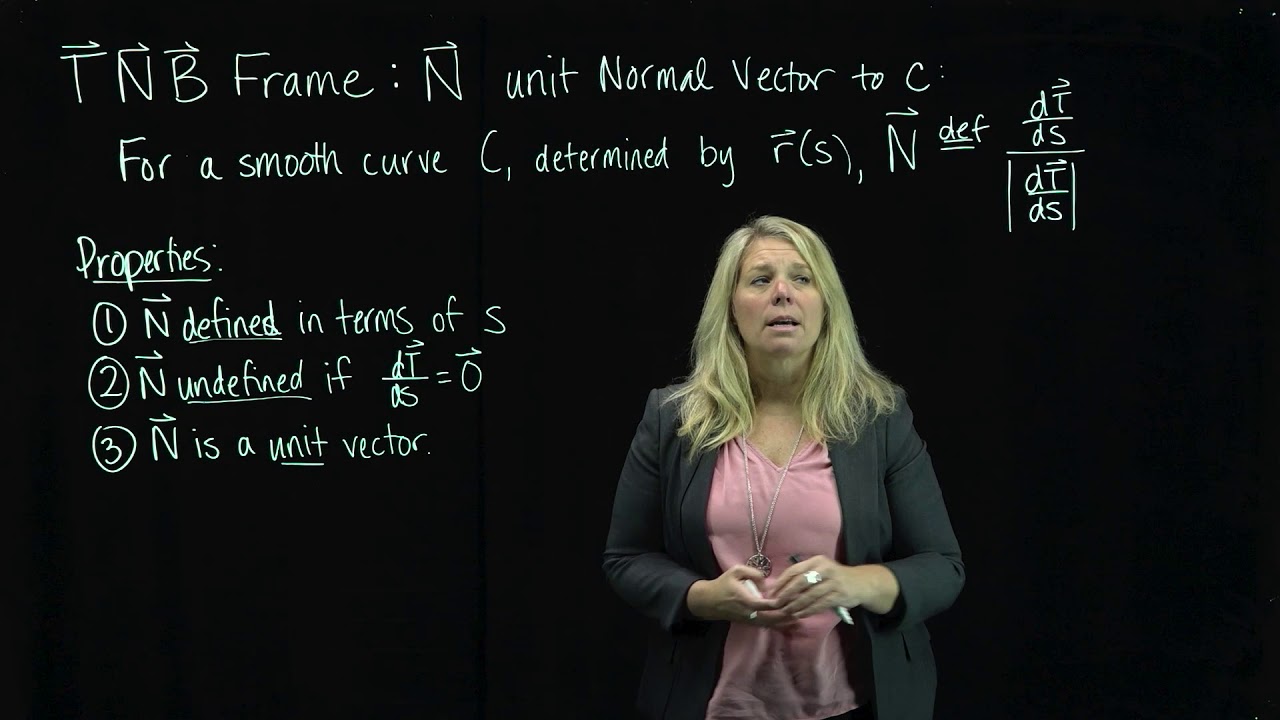 T⃗ N⃗ B⃗ Frame: N⃗ unit Normal Vector to C:
For a smooth curve C, determined by r⃗(s), N⃗ def= (dT⃗/ds)/|dT⃗/ds|
Properties:
① N⃗ defined in terms of s
② N⃗ undefined if dT⃗/ds = 0⃗
③ N⃗ is a unit vector.